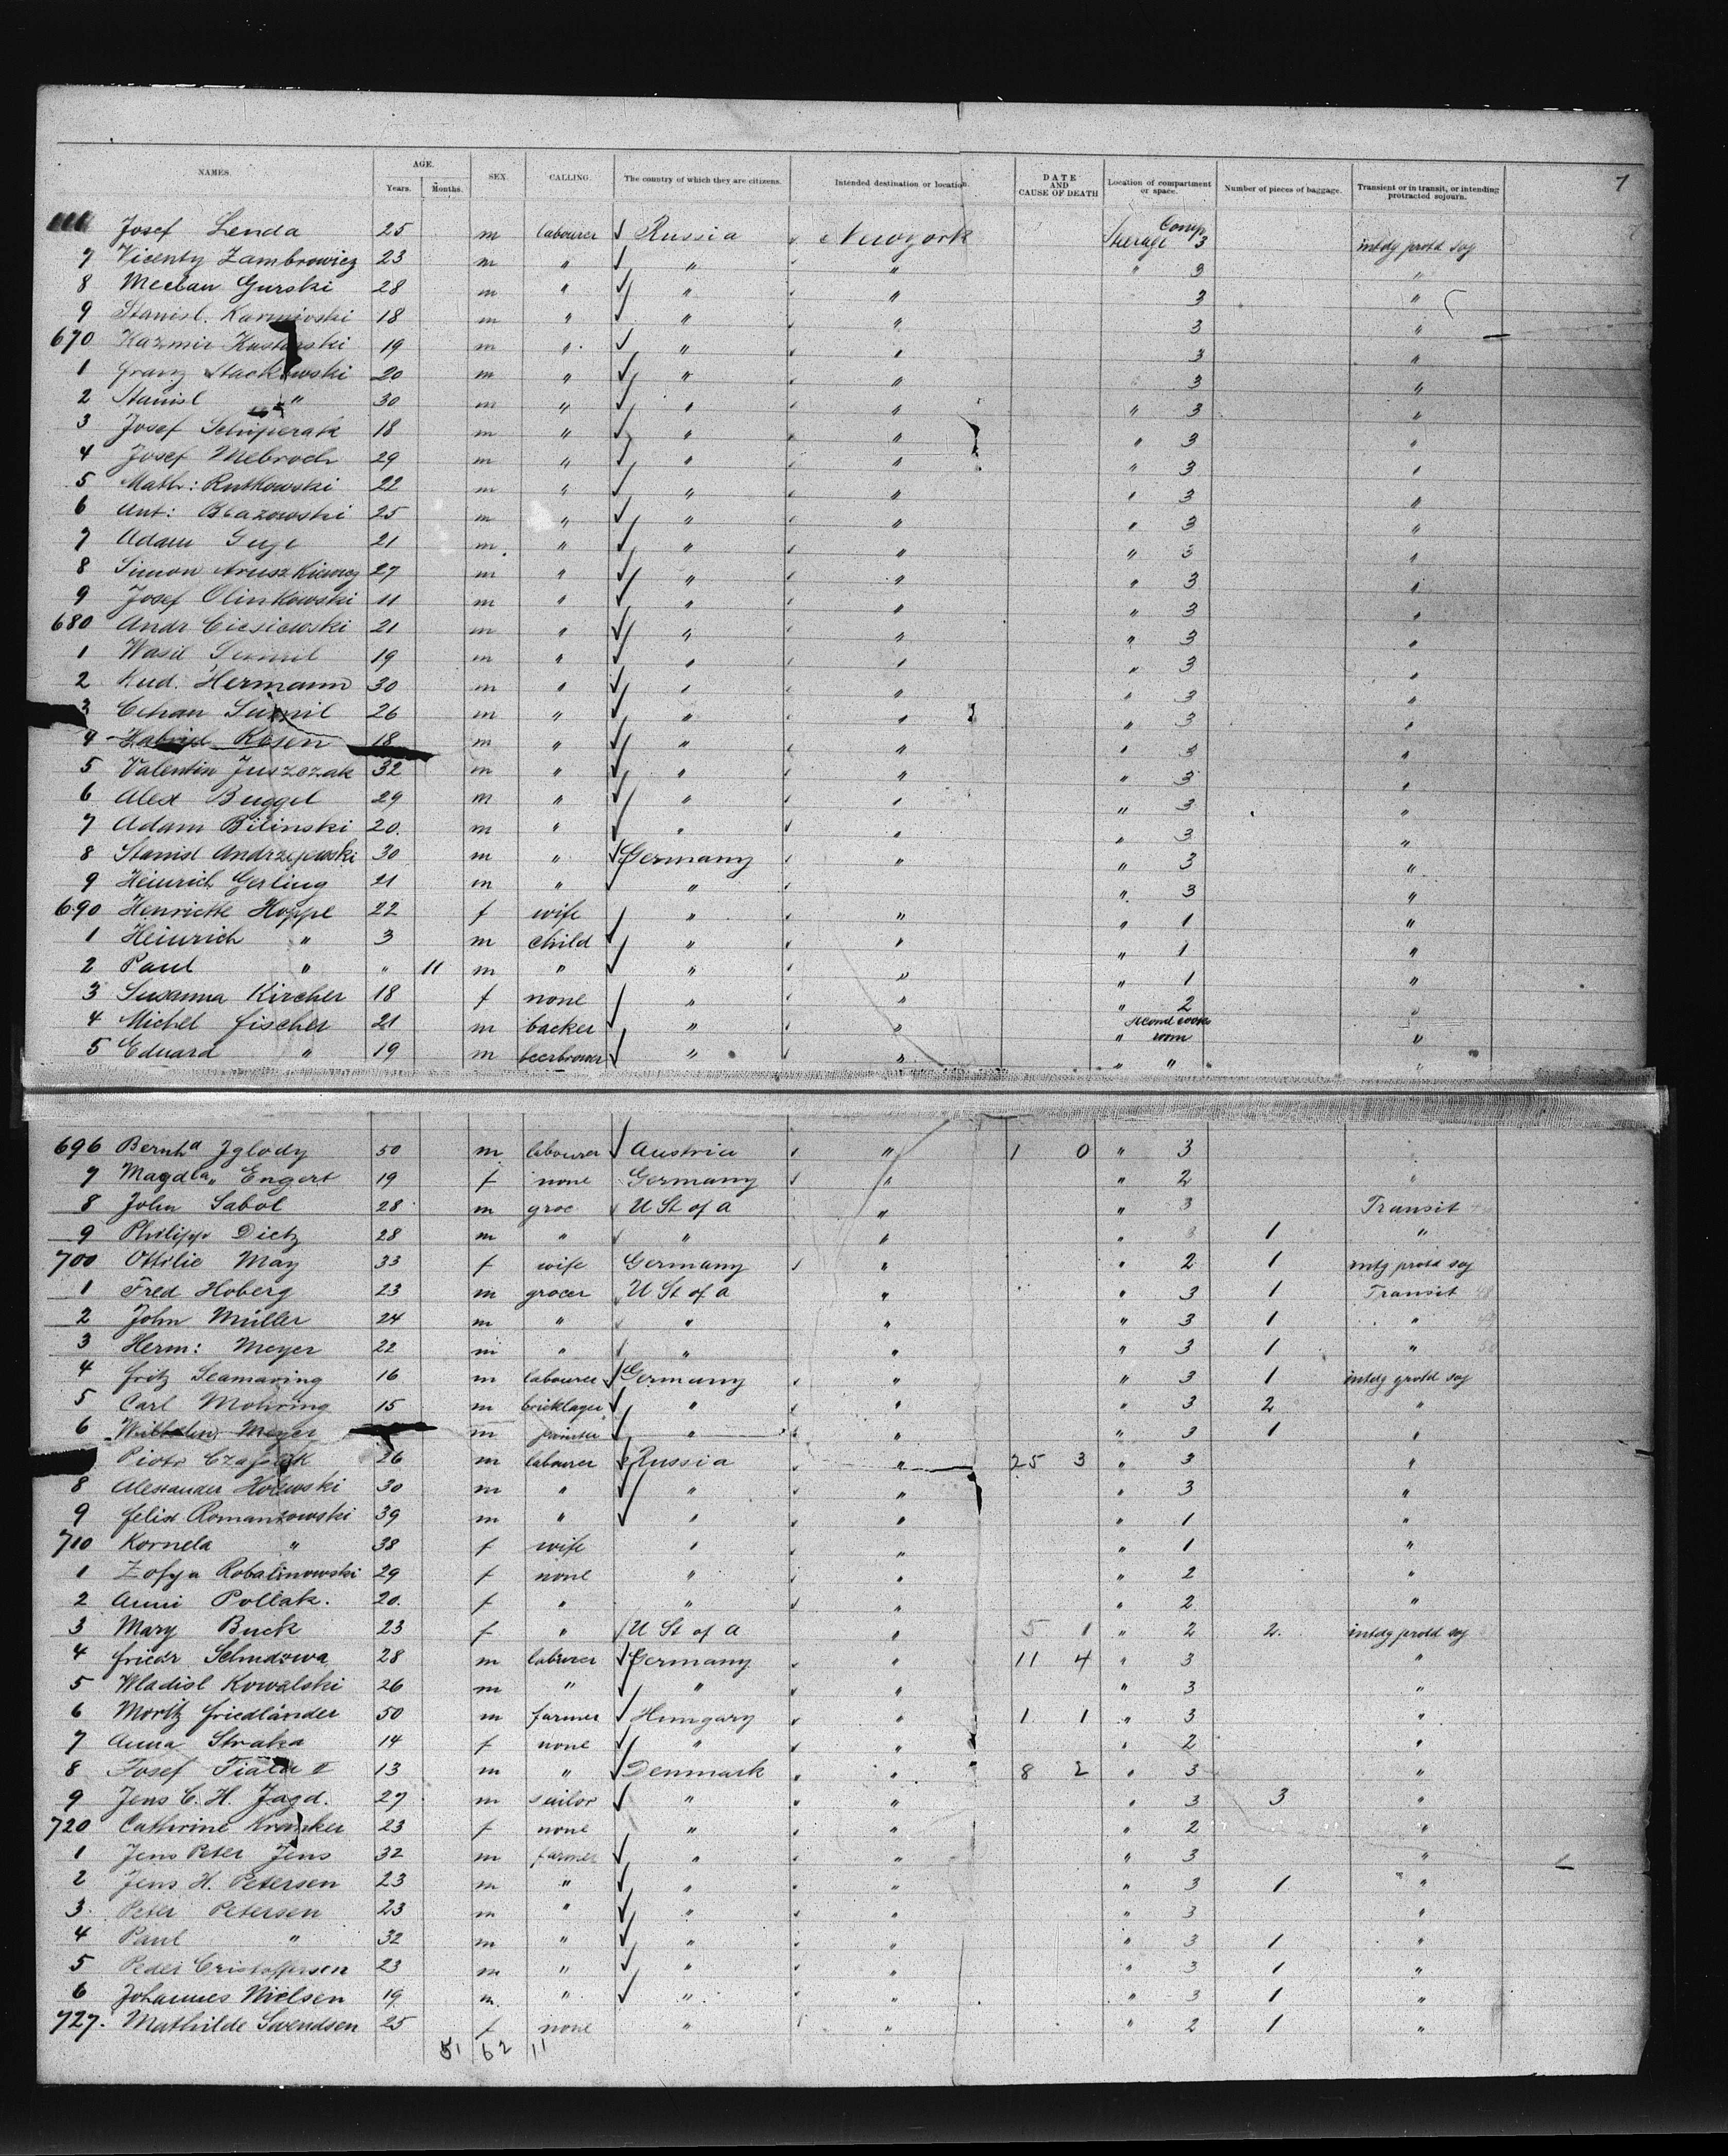 7
NAMES. AGE. Years. Months. SEX. CALLING. The country of which they are citizens. Intended destination or location. DATE AND CAUSE OF DEATH Location of compartment or space. Number of pieces of baggage. Transient or in transit, or intending protracted sojourn.
Josef Lenda 25 m labourer ✓ Russia Newyork Steerage Comp 3 intdg protd soj
7 Vicenty Zambrowicz 23 m " ✓ " " " 3 "
8 Gurski 28 m " ✓ " " 3 "
9 Stanisl. 18 m " ✓ " " 3 "
670 Kazmir 19 m " ✓ " " 3 "
1 Franz 20 m " ✓ " " 3 "
2 Stanisl " 30 m " ✓ " " " 3 "
3 Josef 18 m " ✓ " " " 3 "
4 Josef Mebroch 29 m " ✓ " " " 3 "
5 Math: Rutkowski 22 m " ✓ " " " 3 "
6 Ant: Blazowski 25 m " ✓ " " " 3 "
7 Adam 21 m " ✓ " " " 3 "
8 Simon 27 m " ✓ " " " 3 "
9 Josef Olinkowski 11 m " ✓ " " " 3 "
680 Andr Ciesiewski 21 m " ✓ " " " 3 "
1 Wasil 19 m " ✓ " " " 3 "
2 Rud. Hermann 30 m " ✓ " " " 3 "
3 26 m " ✓ " " " 3 "
4 Rosen 18 m " ✓ " " " 3 "
5 Valentin Juszczak 32 m " ✓ " " " 3 "
6 Alex Buggel 29 m " ✓ " " " 3 "
7 Adam Bilinski 20. m " ✓ " " " 3 "
8 Stanisl Andrzejewski 30 m " ✓ Germany " " 3 "
9 Heinrich Gerling 21 m " ✓ " " 3 "
690 Henriette Hoppe 22 f wife ✓ " " " 1 "
1 Heinrich " 3 m child ✓ " " " 1 "
2 Paul " " 11 m " ✓ " " " 1 "
3 Susanna Kircher 18 f none ✓ " " " 2 "
4 Michel Fischer 21 m backer ✓ " " " second room "
5 Eduard " 19 m beerbrower ✓ " " " "
696 Bernhd Iglody 50 m labourer ✓ Austria " 1 0 " 3
7 Magdla Engert 19 f none Germany " " 2 "
8 John Sabol 28 m groc U St of a " " 3 Transit
9 Philipp Dietz 28 m " " " " 3 1 "
700 Ottilie May 33 f wife Germany " " 2 1 intdg protd soj
1 Fred Hoberg 23 m grocer U St of a " " 3 1 Transit 48
2 John Müller 24 m " " " " 3 1 " 49
3 Herm: Meyer 22 m " " " " 3 1 " 50
4 Fritz Leamaring 16 m labourer ✓ Germany " " 3 1 intdg protd soj
5 Carl Mohring 15 m bricklayer ✓ " " " 3 2 "
6 Wilhelm Meyer m ✓ " " " 3 1 "
Piotr 26 m labourer ✓ Russia " 25 3 " 3 "
8 Alexander Holewski 30 m " ✓ " " " 3 "
9 Felix Romanzowski 39 m " ✓ " " " 1 "
710 Kornela " 38 f wife " " " 1 "
1 Zofya Robalinowski 29 f none " " " 2 "
2 Anni Pollak. 20. f " " " " 2 "
3 Mary Buck 23 f " ✓ U St of a " 5 1 " 2 2. intdg protd soj
4 Friedr 28 m labourer ✓ Germany " 11 4 " 3 "
5 Wladisl Kowalski 26 m " ✓ " " " 3 "
6 Moritz Friedländer 50 m farmer ✓ Hungary " 1 1 " 3 "
7 Anna Straka 14 f none ✓ " " " 2 "
8 Josef 13 m " ✓ Denmark " 8 2 " 3 "
9 Jens C. H. Jagd. 27 m sailor ✓ " " " 3 3 "
720 Cathrine Kranker 23 f none " " " 2 "
1 Jens Peter Jens 32 m farmer ✓ " " " 3 "
2 Jens H. Petersen 23 m " ✓ " " " 3 1 "
3. Peter Petersen 23 m " ✓ " " " 3 "
4 Paul " 32 m " ✓ " " " 3 1 "
5 Peder Cristoffersen 23 m " ✓ " " " 3 1 "
6 Johannes Nielsen 19 m " ✓ " " " 3 1 "
727. Mathilde Swendsen 25 f none " " " 2 1 "
51 62 11